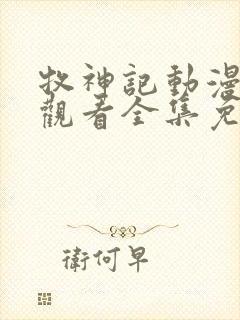 牧神記動漫
觀看全集免
衛何早